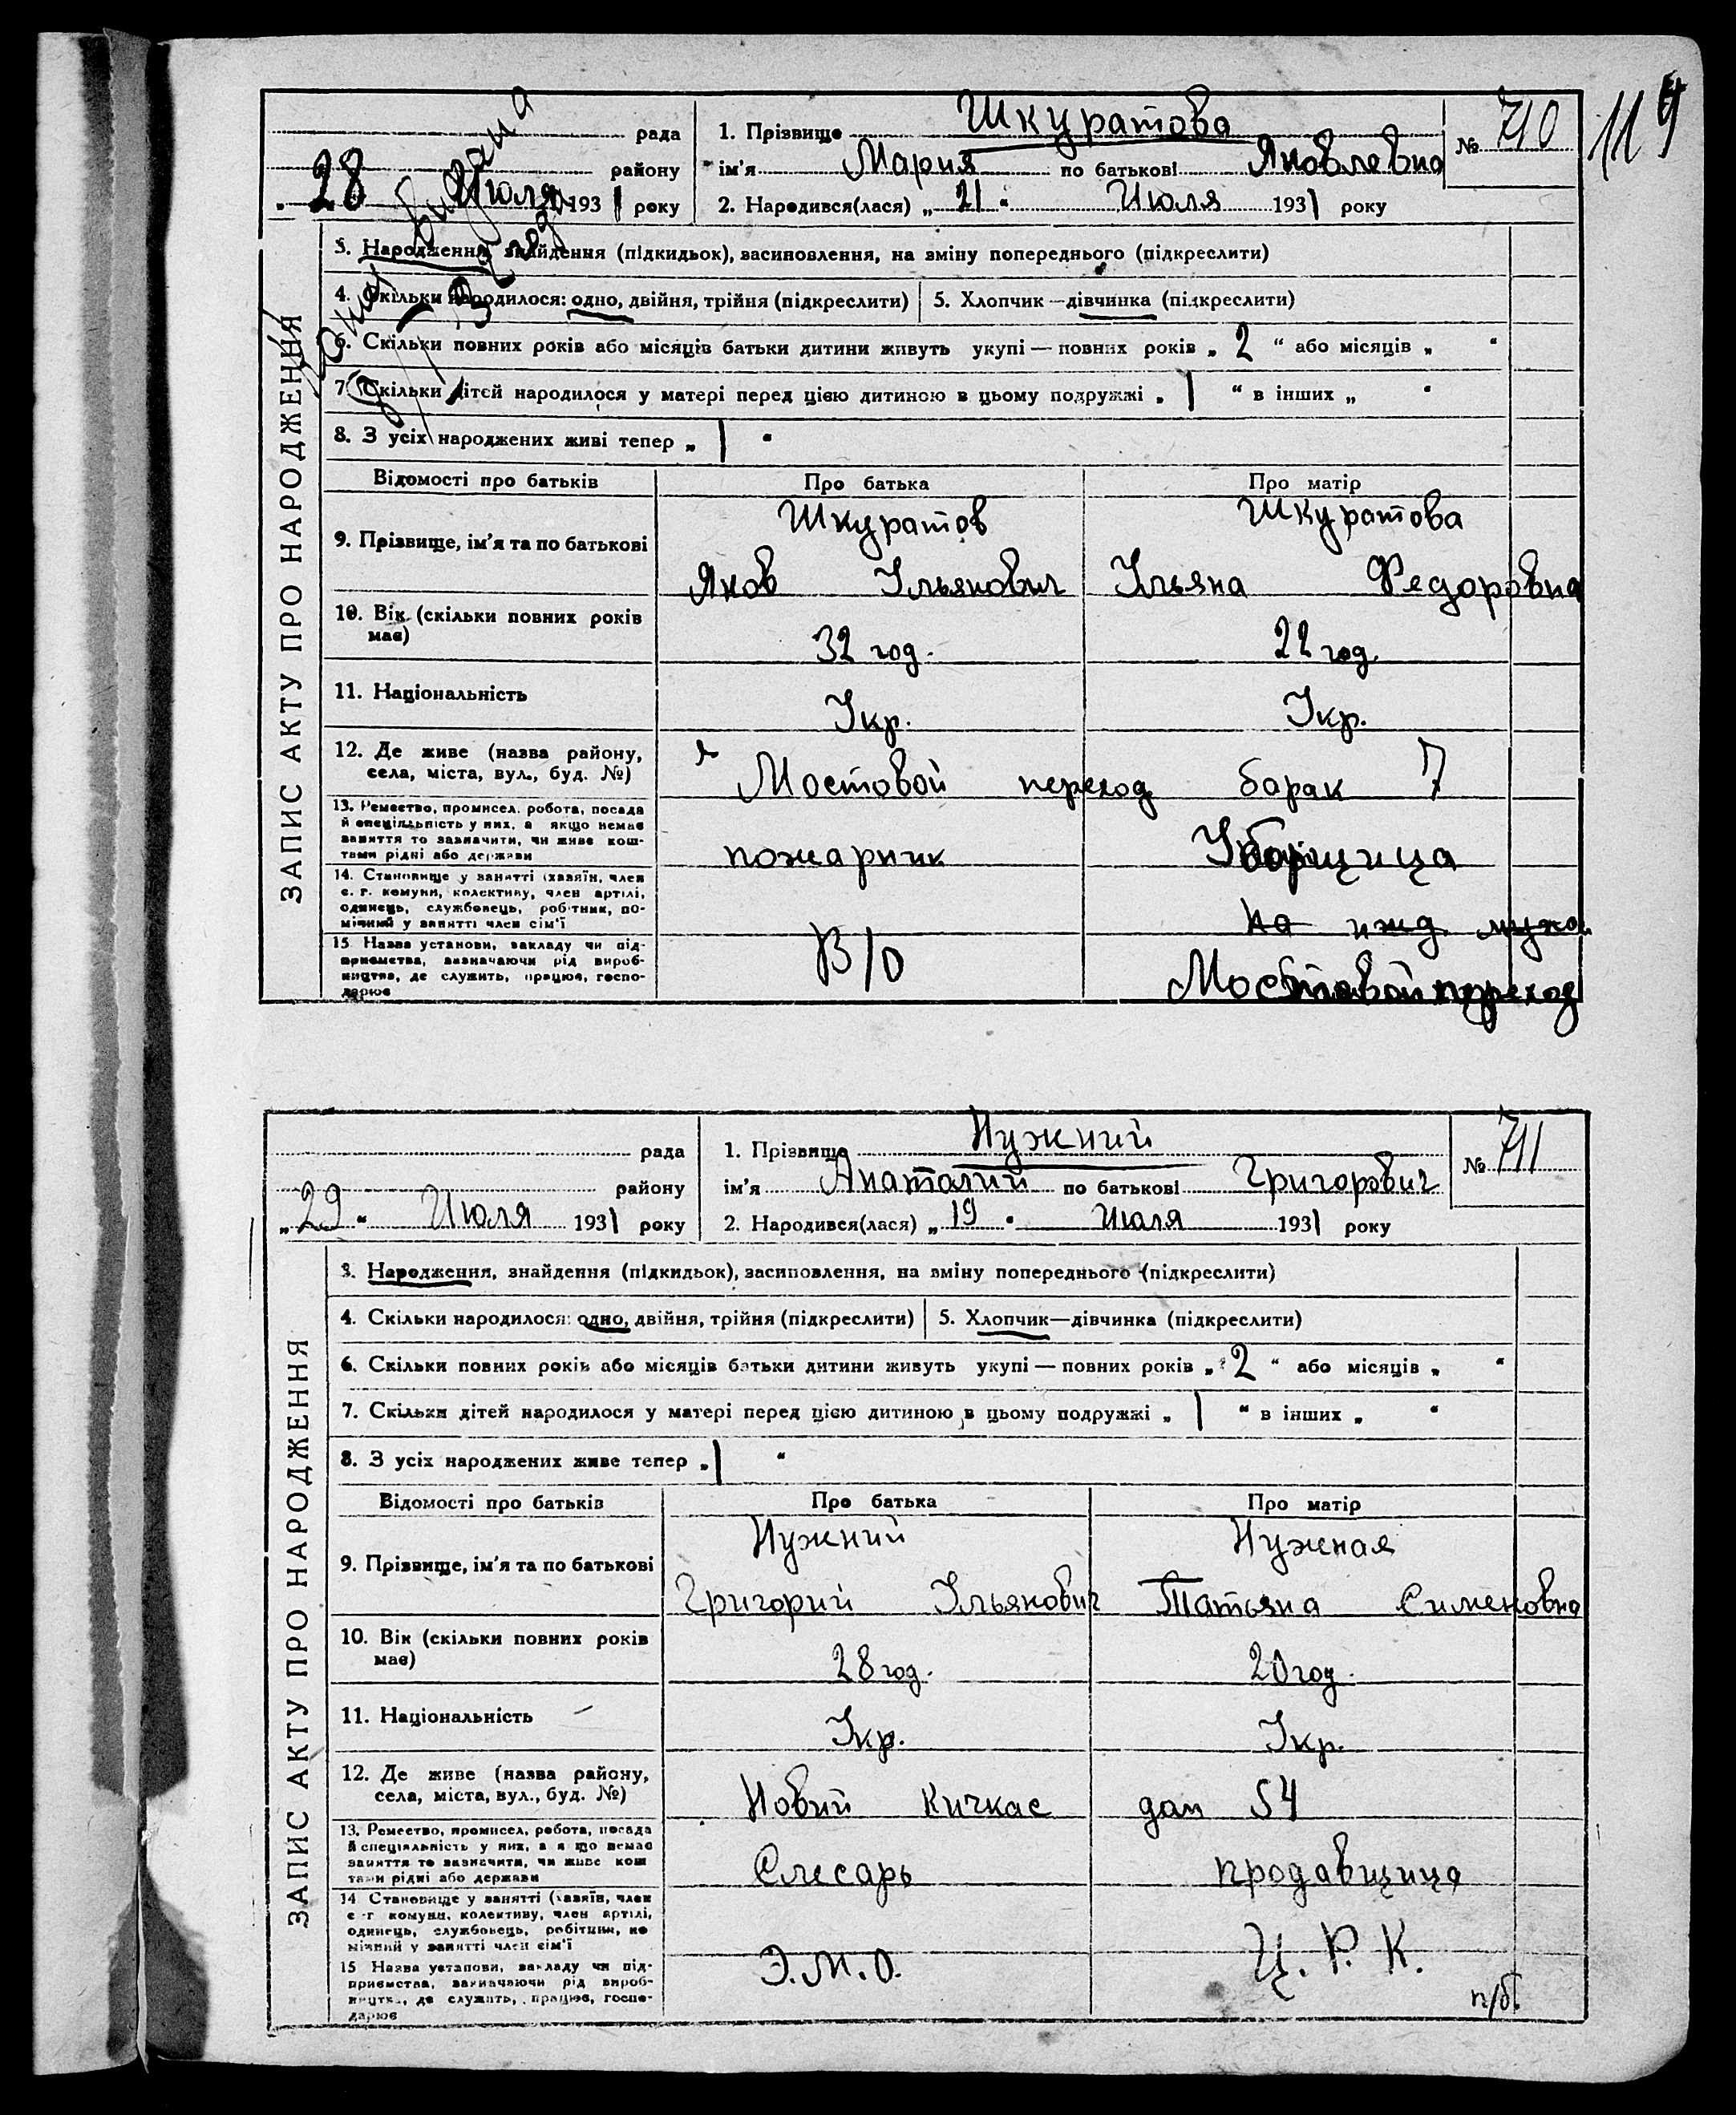 119
ЗАПИС АКТУ ПРО НАРОДЖЕННЯ
рада
району
28 Июля 1931 року
1. Прізвище Шкуратова
ім'я Мария по батькові Яковлевна
2. Народився(лася) „21“ Июля 1931 року
№ 710
3. Народження, знайдення (підкидьок), засиновлення, на зміну попереднього (підкреслити)
4. Скільки народилося: одно, двійня, трійня (підкреслити) 5. Хлопчик—дівчинка (підкреслити)
6. Скільки повних років або місяців батьки дитини живуть укупі — повних років „2“ або місяців „ “
7. Скільки дітей народилося у матері перед цією дитиною в цьому подружжі „1“ в інших „ “
8. З усіх народжених живі тепер „1“
Відомості про батьків Про батька Про матір
9. Прізвище, ім'я та по батькові
Шкуратов Шкуратова
Яков Ільянович Ульяна Федоровна
10. Вік (скільки повних років має)
32 год. 22 год.
11. Національність Укр. Укр.
12. Де живе (назва району, села, міста, вул., буд. №)
Мостовой переход барак 7
13. Ремество, промисел, робота, посада й спеціяльність у них, а якщо немає заняття то зазначити, чи живе коштами рідні або держави
пожарник Уборщица
14. Становище у занятті (хазяїн, член с.-г. комуни, колективу, член артілі, одинець, службовець, робітник, помічний у занятті член сім'ї
на ижд. мужа
15. Назва установи, закладу чи підприємства, зазначаючи рід виробництва, де служить, працює, господарює
В/О Мостовой переход
ЗАПИС АКТУ ПРО НАРОДЖЕННЯ
рада
району
„29“ Июля 1931 року
1. Прізвище Нужний
ім'я Анаталий по батькові Григорович
2. Народився(лася) „19“ Июля 1931 року
№ 711
3. Народження, знайдення (підкидьок), засиновлення, на зміну попереднього (підкреслити)
4. Скільки народилося: одно, двійня, трійня (підкреслити) 5. Хлопчик—дівчинка (підкреслити)
6. Скільки повних років або місяців батьки дитини живуть укупі — повних років „2“ або місяців „ “
7. Скільки дітей народилося у матері перед цією дитиною в цьому подружжі „1“ в інших „ “
8. З усіх народжених живе тепер „1“
Відомості про батьків Про батька Про матір
9. Прізвище, ім'я та по батькові
Нужний Нужная
Григорий Ільянович Татьяна Сименовна
10. Вік (скільки повних років має)
28 год. 20 год.
11. Національність Укр. Укр.
12. Де живе (назва району, села, міста, вул., буд. №)
Новий Кичкас дом 54
13. Ремество, промисел, робота, посада й спеціяльність у них, а якщо немає заняття то зазначити, чи живе коштами рідні або держави
Слесарь продавщица
14. Становище у занятті (хазяїн, член с.-г. комуни, колективу, член артілі, одинець, службовець, робітник, помічний у занятті член сім'ї
15. Назва установи, закладу чи підприємства, зазначаючи рід виробництва, де служить, працює, господарює
Э.М.О. Ц.Р.К.
п/б.